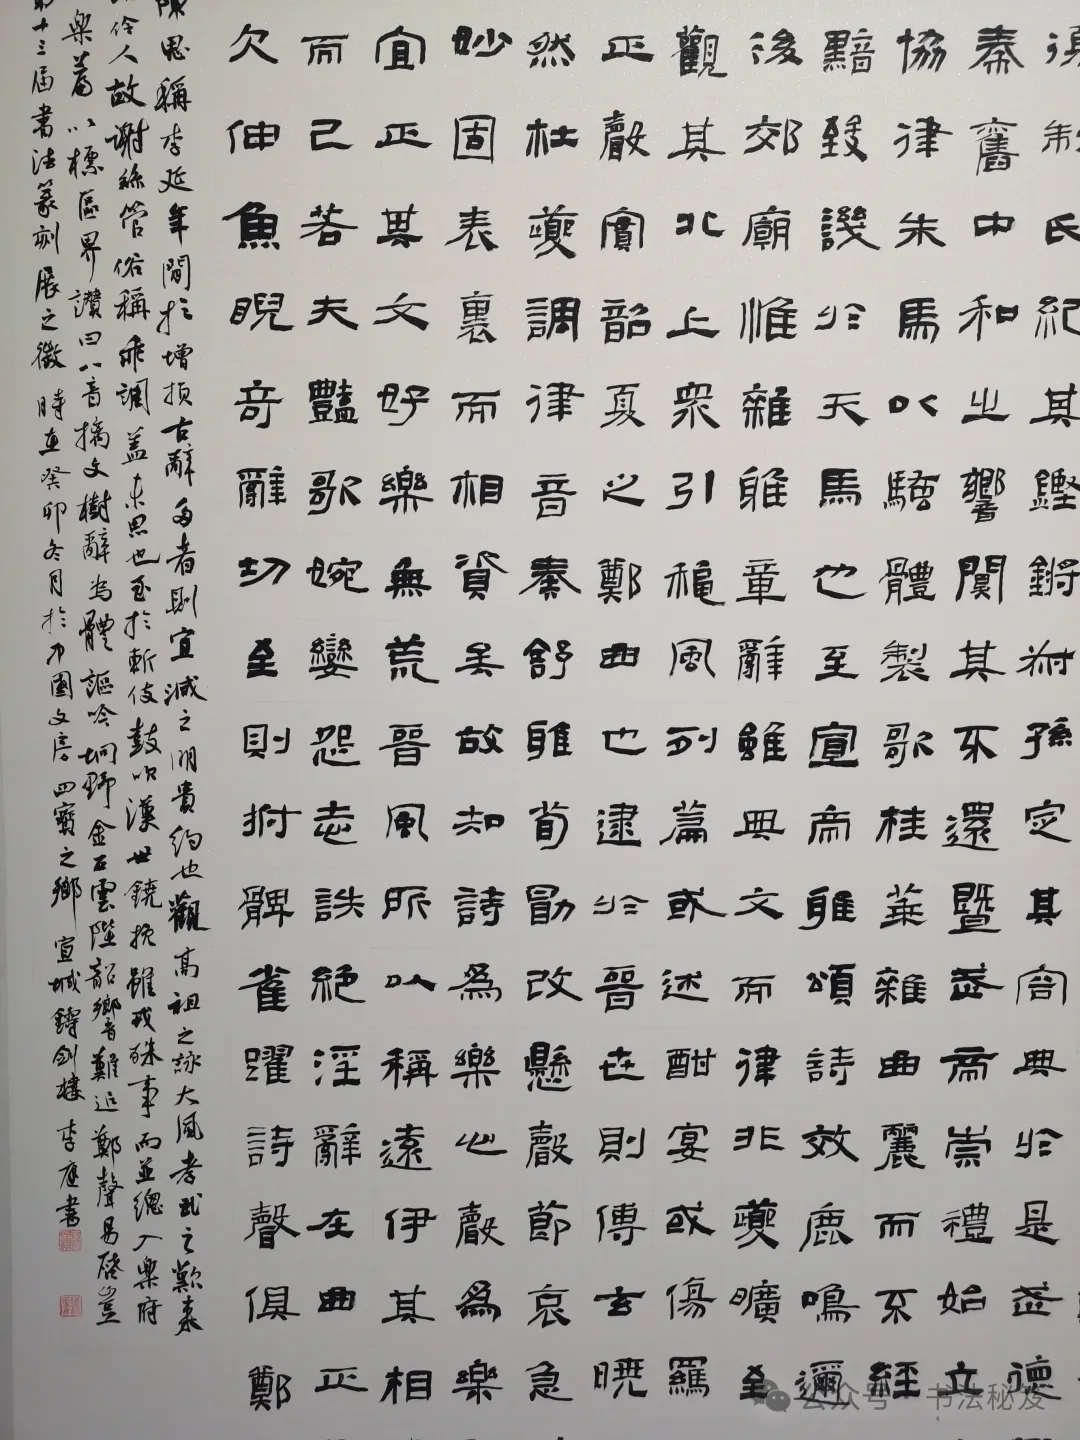 須制氏紀其鏗鏘叔孫定其容典於是武德
秦舊中和之響闃其不還暨武帝崇禮始立
協律朱馬以騷體製歌桂華雜曲麗而不經
黯致譏於天馬也至宣帝雅頌詩效鹿鳴邇
後郊廟惟雜雅章辭雖典文而律非夔曠至
觀其北上眾引穐風列篇或述酣宴或傷羅
正聲實韶夏之鄭曲也逮於晉世則傅玄曉
然杜夔調律音奏舒雅荀勖改懸聲節哀急
妙固表裏而相資矣故知詩為樂心聲為樂
宜正其文好樂無荒晉風所以稱遠伊其相
而已若夫豔歌婉孌怨志詄絕淫辭在曲正
欠伸魚睨奇辭切至則拊髀雀躍詩聲俱鄭
陳思稱李延年閒於增損古辭多者則宜減之明貴約也觀高祖之詠大風孝武之歎來
伶人故謝絲管俗稱乖調蓋未思也至於斬伎鼓吹漢世鐃挽雖戎殊事而並總入樂府
樂篇以標區界讚曰八音摛文樹辭為體謳吟坰野金石雲陛韶響難追鄭聲易啓豈
第十三屆書法篆刻展之徵時在癸卯冬月於中國文房四寶之鄉宣城鑄劍樓李庭書
公众号·书法秘笈